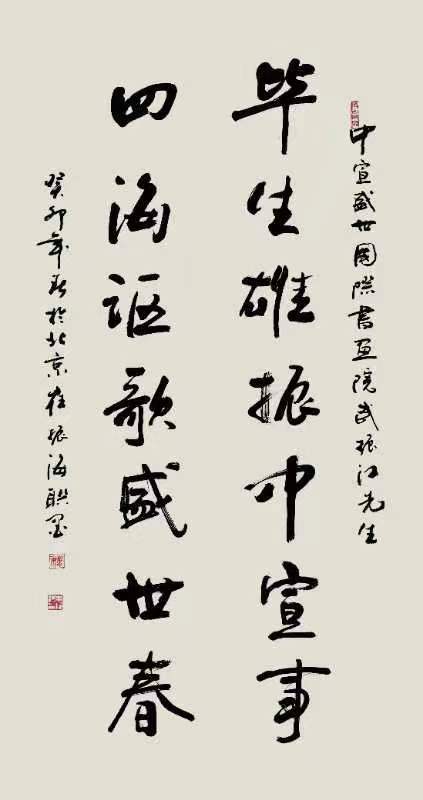 中宣盛世國際書畫院武振江先生
毕生雄振中宣事
四海讴歌盛世春
癸卯年春於北京崔振海联墨